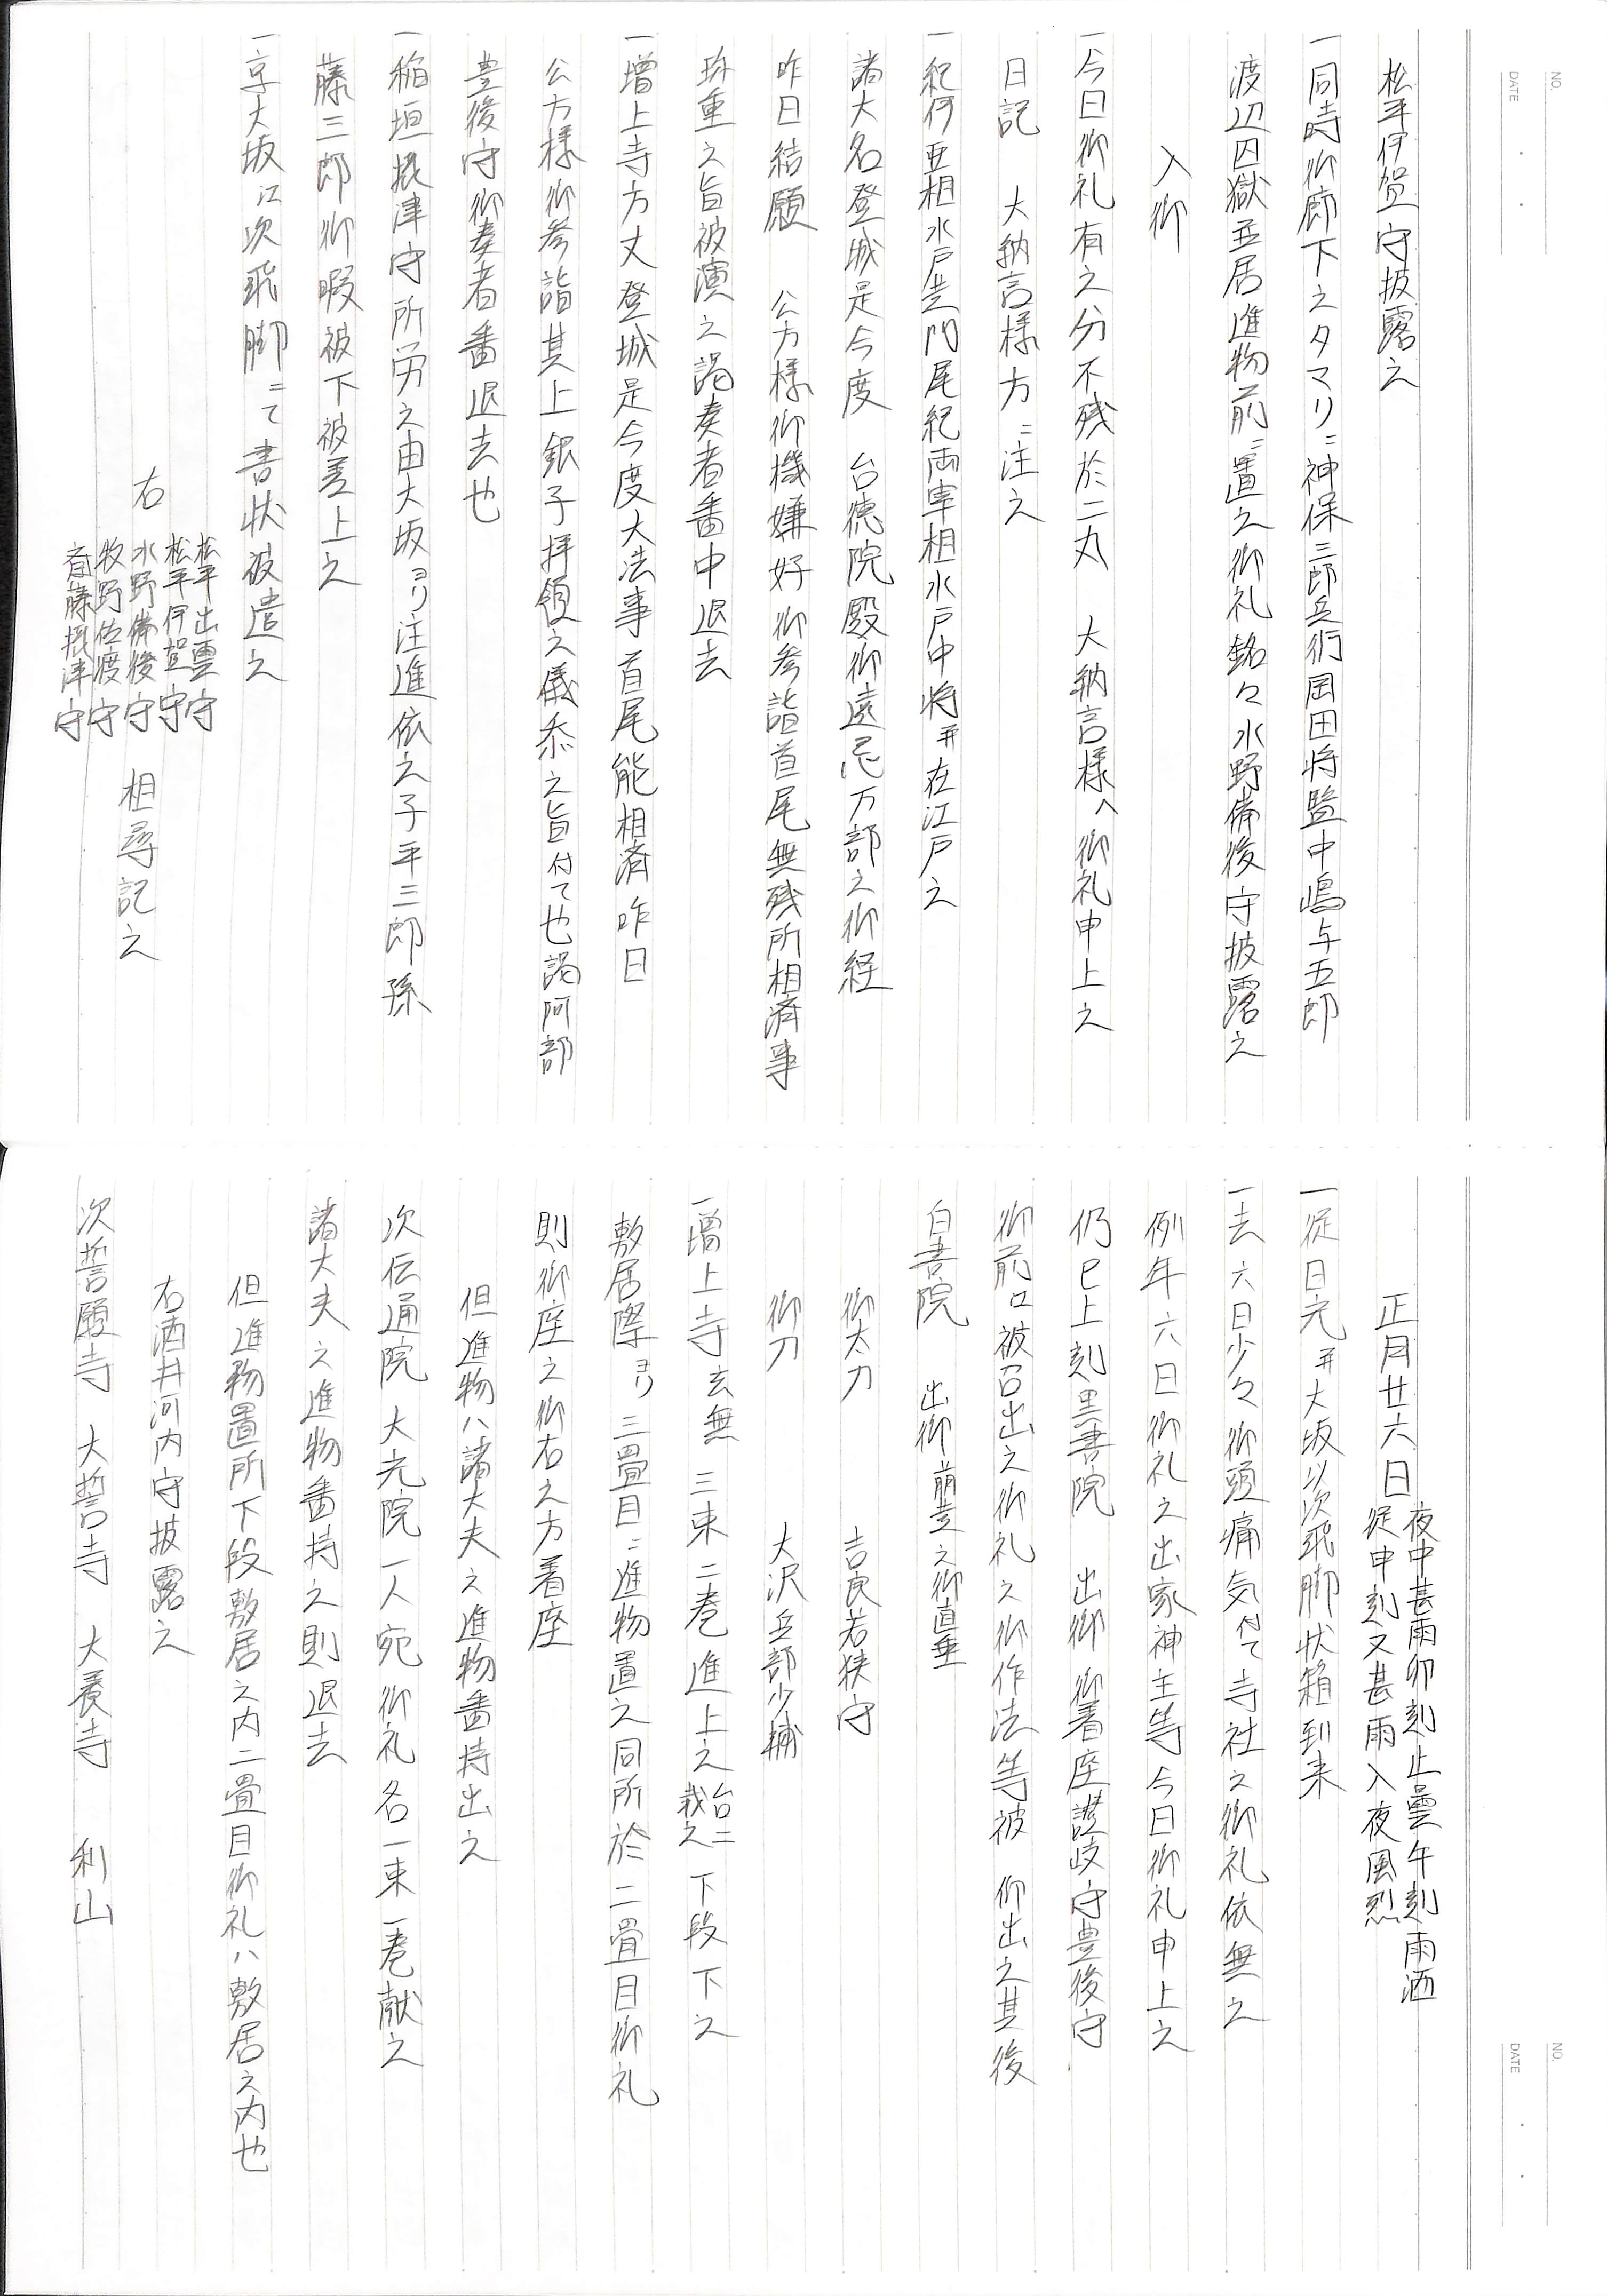 NO.
DATE
松平伊賀守披露之
一同時御廊下之タマリニ神保三郎兵衛岡田将監中嶋与五郎
渡辺囚獄並居進物前ニ置之御礼銘々水野備後守披露之
入御
一今日御礼有之分不残於二丸 大納言様へ御礼申上之
日記 大納言様方ニ注之
一紀伊亜相水戸黄門尾紀両宰相水戸中将并在江戸之
諸大名登城是今度 台徳院殿御遠忌万部之御経
昨日結願 公方様御機嫌好御参詣首尾無残所相済事
珍重之旨被演之謁奏者番中退去
一増上寺方丈登城是今度大法事首尾能相済昨日
公方様御参詣其上銀子拝領之儀忝之旨付て也謁阿部
豊後守御奏者番退去也
一稲垣摂津守所労之由大坂ヨリ注進依之子平三郎孫
藤三郎御暇被下被差上之
一京大坂江次飛脚ニて書状被遣之
右
松平出雲守
松平伊賀守
水野備後守
牧野佐渡守
斎藤摂津守
相尋記之
NO.
DATE
正月廿六日
夜中甚雨卯刻止曇午刻雨洒
従申刻又甚雨入夜風烈
一従日光并大坂以次飛脚状箱到来
一去六日少々御頭痛気付て寺社之御礼依無之
例年六日御礼之出家神主等今日御礼申上之
仍巳上刻黒書院 出御 御着座讃岐守豊後守
御前江被召出之御礼之御作法等被 仰出之其後
白書院 出御 萠黄之御直垂
御太刀 吉良若狭守
御刀 大沢兵部少輔
一増上寺玄無 三束二巻進上之 台ニ載之 下段下之
敷居際ヨリ三畳目ニ進物置之同所於二畳目御礼
則御座之御右之方着座
但進物ハ諸大夫之進物番持出之
次伝通院 大光院 一人宛御礼各一束一巻献之
諸大夫之進物番持之則退去
但進物置所下段敷居之内二畳目御礼ハ敷居之内也
右酒井河内守披露之
次誓願寺 大誓寺 大養寺 利山